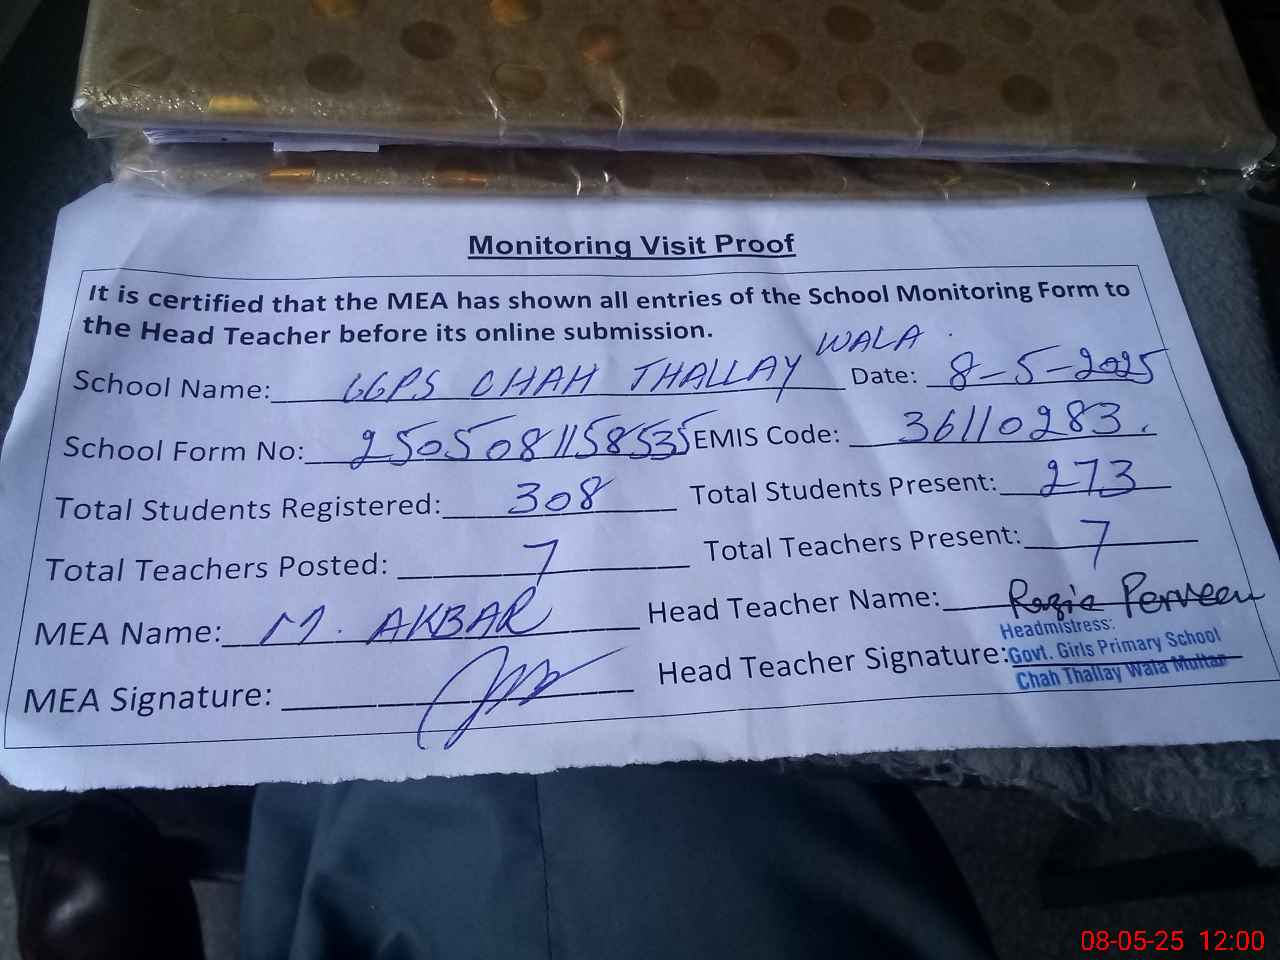 Monitoring Visit Proof
It is certified that the MEA has shown all entries of the School Monitoring Form to
the Head Teacher before its online submission.
School Name: GGPS CHAH THALLAY WALA Date: 8-5-2025
School Form No: 2505081158535 EMIS Code: 36110283.
Total Students Registered: 308 Total Students Present: 273
Total Teachers Posted: 7 Total Teachers Present: 7
MEA Name: M. AKBAR Head Teacher Name: Razia Perveen
MEA Signature: Head Teacher Signature:
Headmistress:
Govt. Girls Primary School
Chah Thallay Wala Multan
08-05-25 12:00